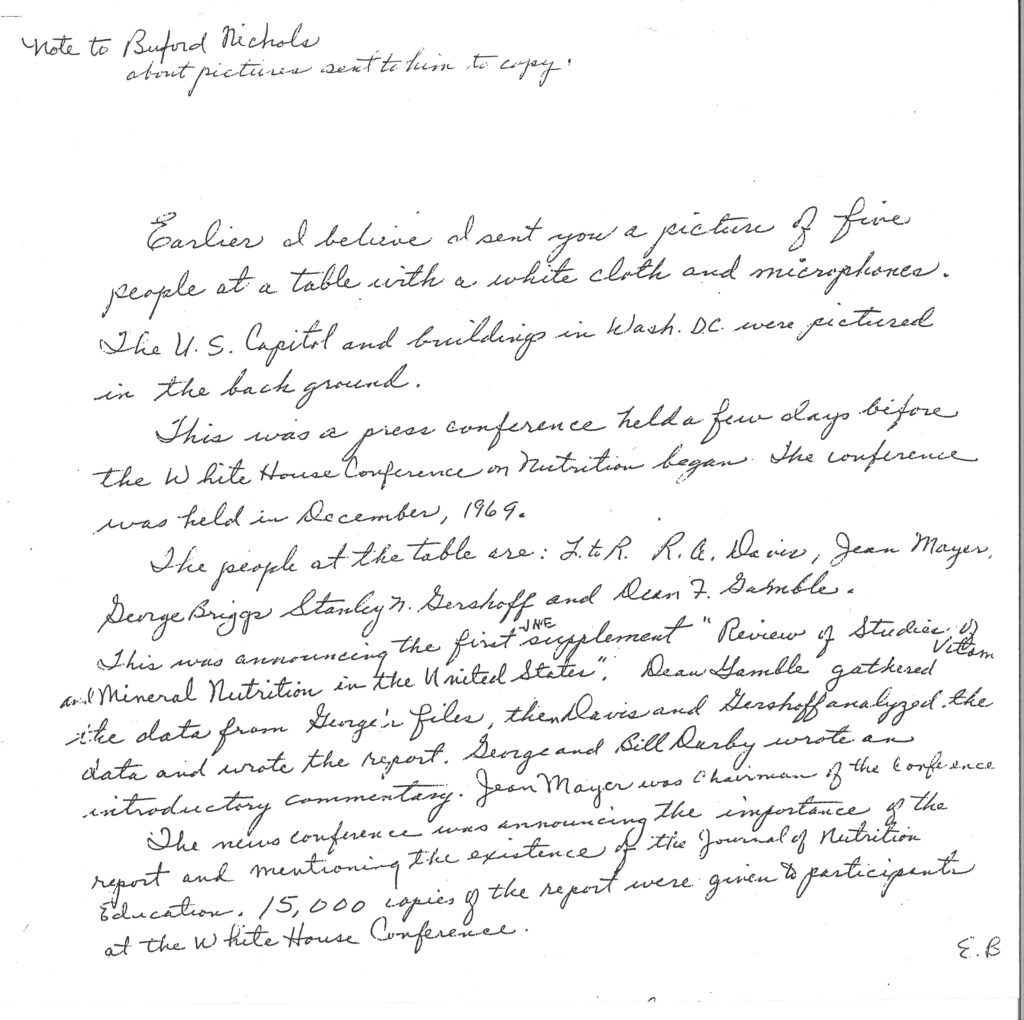 Note to Buford Nichols
about pictures sent to him to copy.
Earlier I believe I sent you a picture of five
people at a table with a white cloth and microphones.
The U.S. Capitol and buildings in Wash. D.C. were pictured
in the back ground.
This was a press conference held a few days before
the White House Conference on Nutrition began. The conference
was held in December, 1969.
The people at the table are: L. to R. R. A. Davis, Jean Mayer,
George Briggs Stanley N. Gershoff and Dean F. Gamble.
This was announcing the first JNE supplement "Review of Studies of Vitam
and Mineral Nutrition in the United States". Dean Gamble gathered
the data from George's files, then Davis and Gershoff analyzed the
data and wrote the report. George and Bill Darby wrote an
introductory commentary. Jean Mayer was Chairman of the Conference
The news conference was announcing the importance of the
report and mentioning the existence of the Journal of Nutrition
Education. 15,000 copies of the report were given to participants
at the White House Conference.
E.B